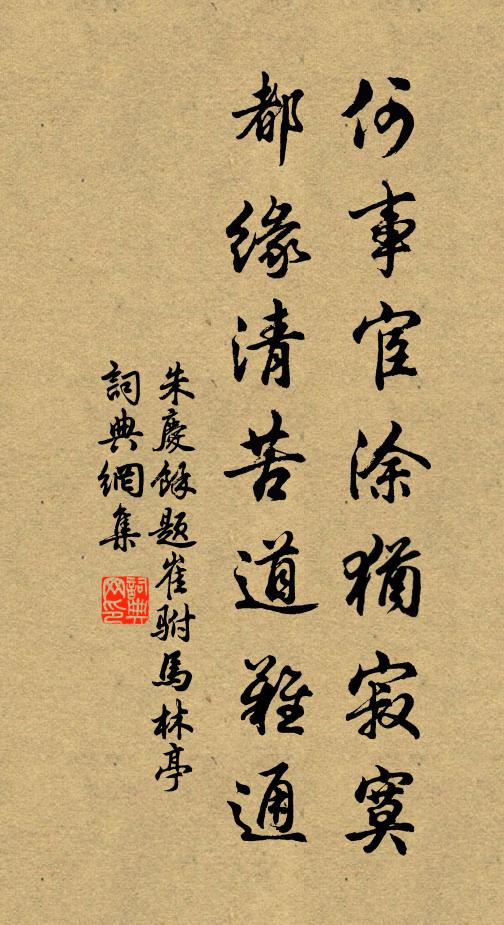 何事宦涂猶寂寞
都緣清苦道難通
朱慶餘題崔駙馬林亭
詞典網集
詞典网印